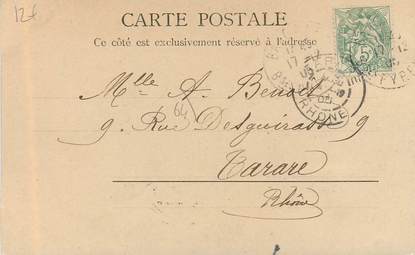 12f
CARTE POSTALE
Ce côté est exclusivement réservé à l'adresse
5
17
RHONE
Mlle A. Benoit
64
9. Rue Desguirasse 9.
Tarare
Rhône